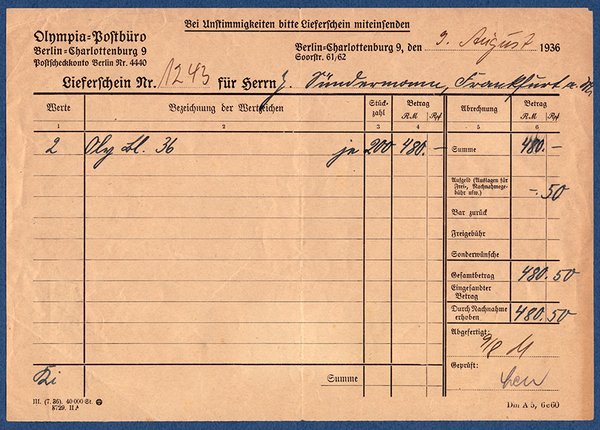 Bei Unstimmigkeiten bitte Lieferschein miteinsenden
Olympia=Postbüro
Berlin=Charlottenburg 9
Postscheckkonto Berlin Nr. 4440
Berlin=Charlottenburg 9, den 9. August 1936
Soorstr. 61/62
Lieferschein Nr. 1243 für Herrn J. Sündermann, Frankfurt a. M.
Werte Bezeichnung der Wertzeichen Stück=zahl Betrag RM Rpf Abrechnung Betrag RM Rpf
1 2 3 4 5 6
2 Oly Bl. 36 je 200 480.– Summe 480.–
Aufgeld (Auslagen für
Frei-, Nachnahmege-
bühr usw.) –.50
Bar zurück
Freigebühr
Sonderwünsche
Gesamtbetrag 480.50
Eingesandter
Betrag
Durch Nachnahme
erhoben 480.50
Abgefertigt:
9/8
Geprüft:
Summe
III. (7. 36). 40 000 St.
8729. II A
Din A 5, 6e60